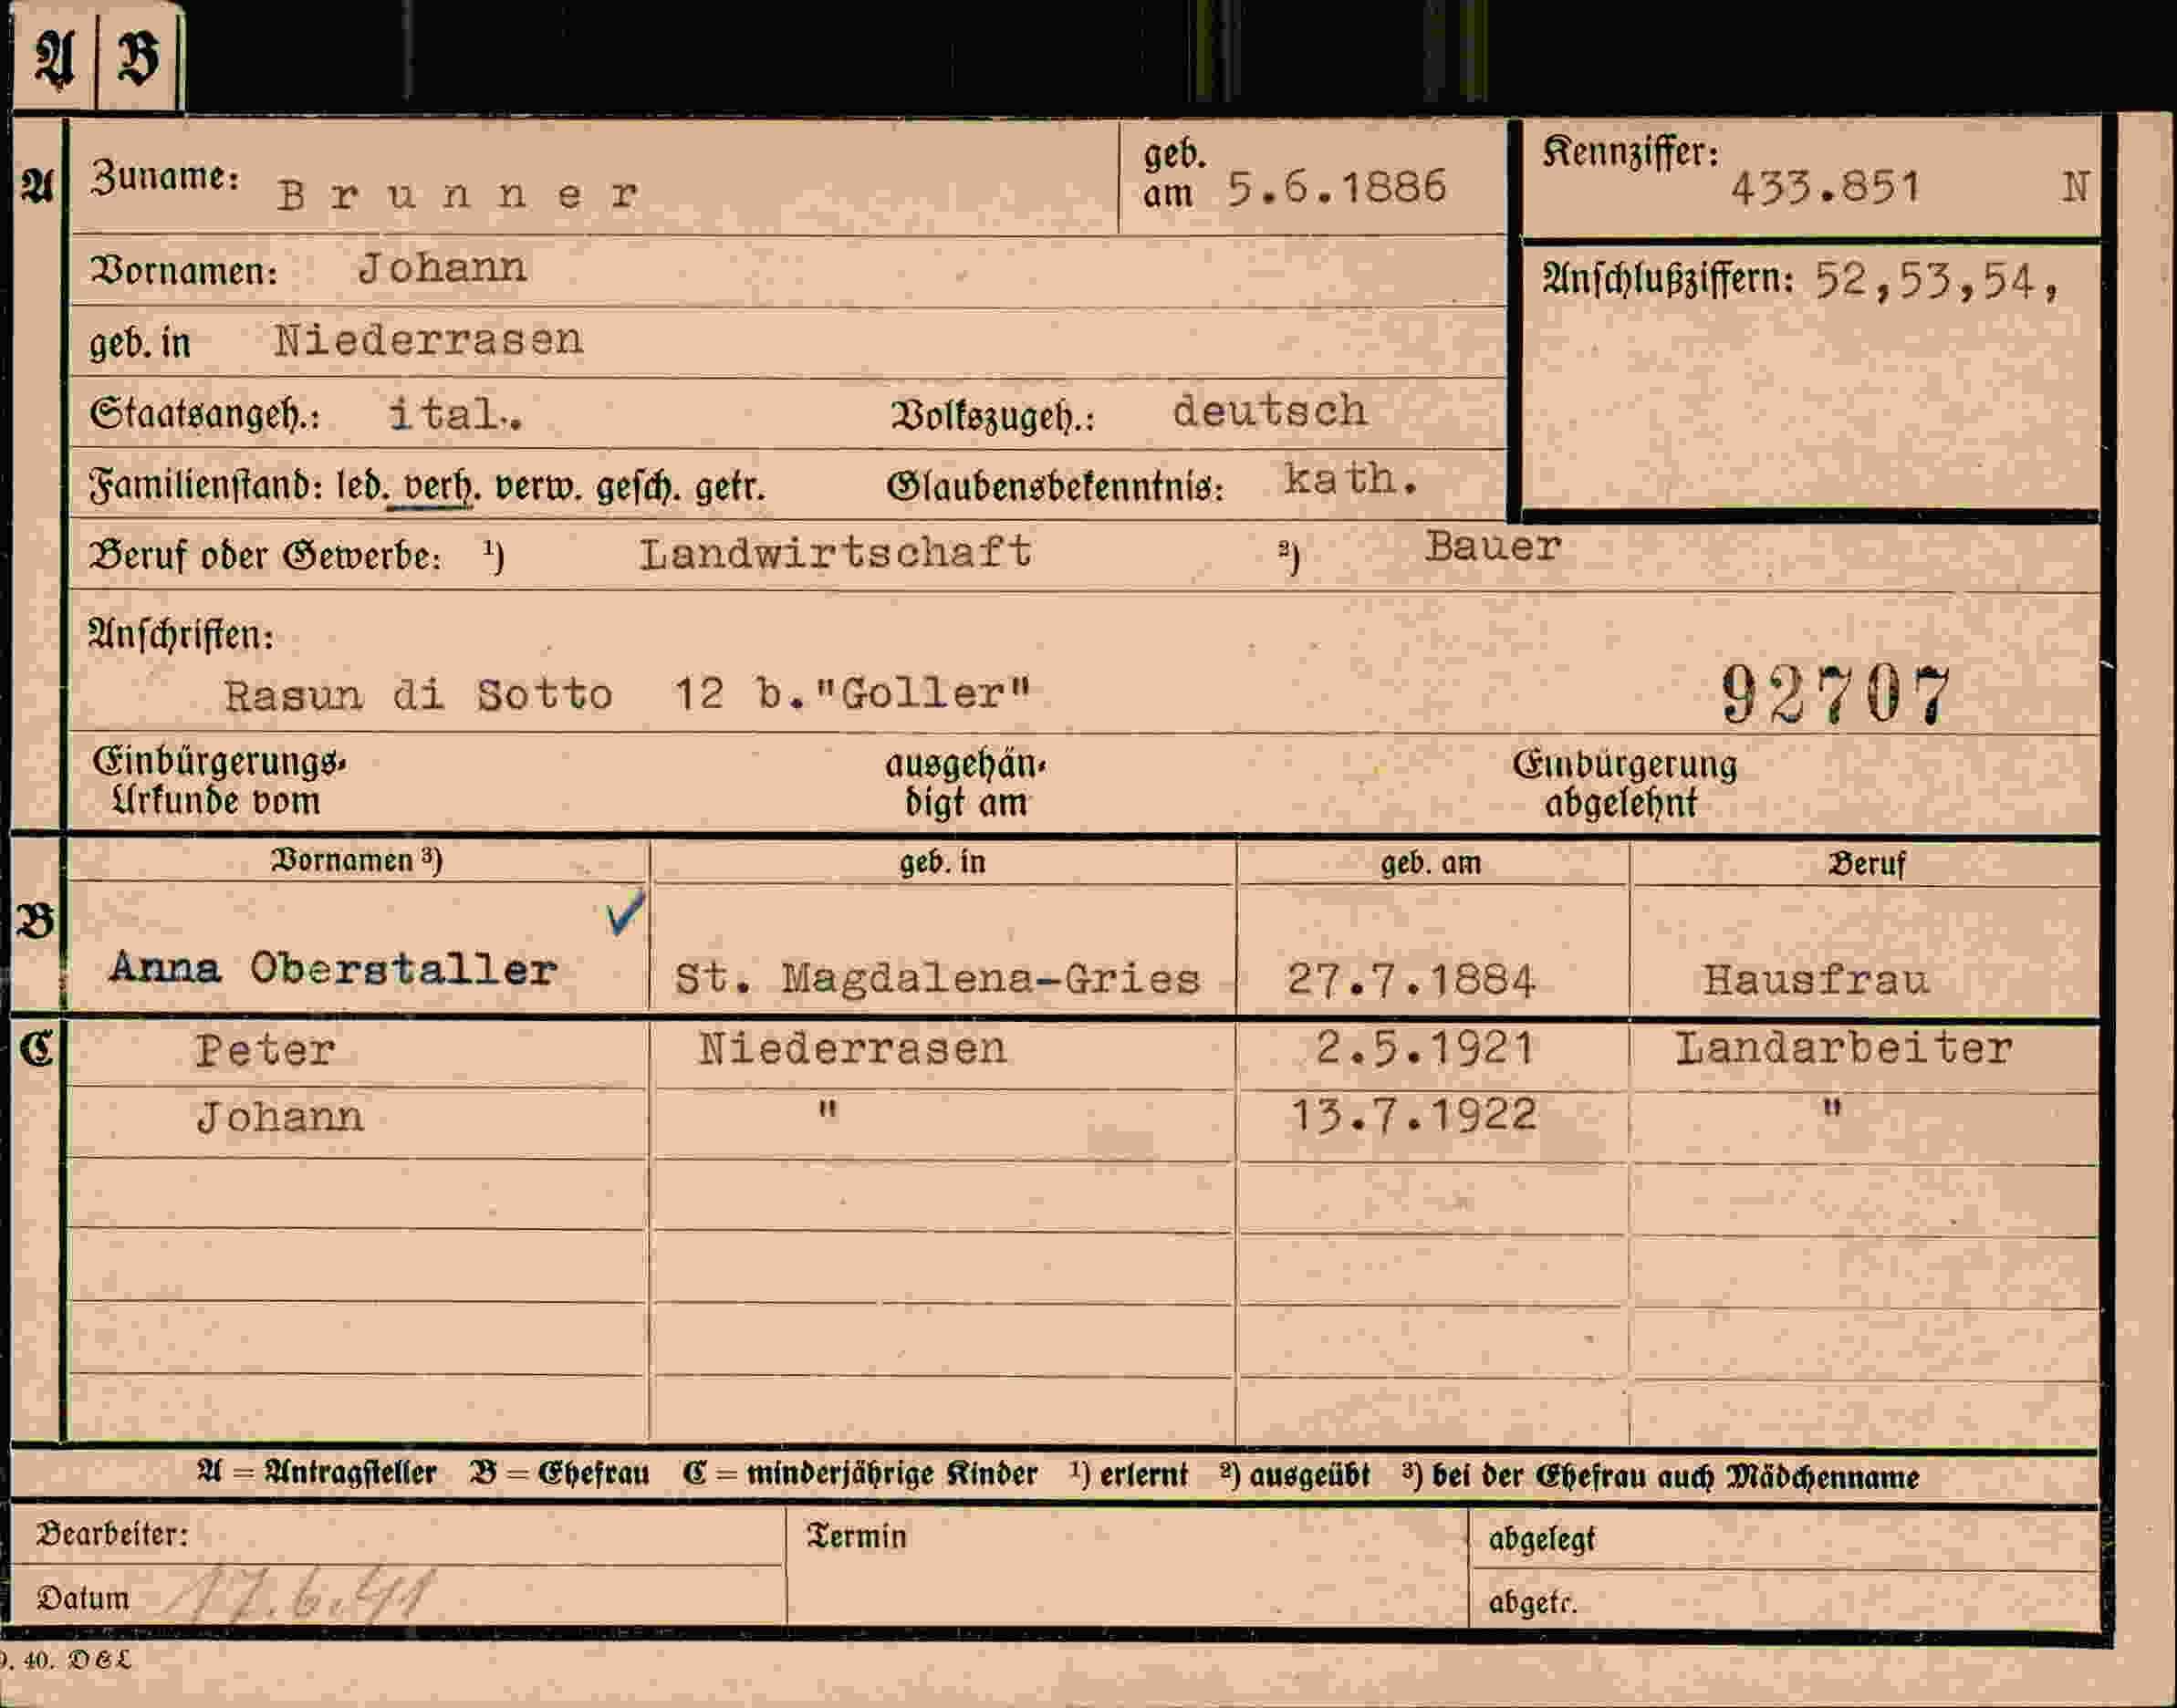 A B
A Zuname: Brunner geb. am 5.6.1886 Kennziffer: 433.851 N
Vornamen: Johann Anschlußziffern: 52,53,54,
geb. in Niederrasen
Staatsangeh.: ital.. Volkszugeh.: deutsch
Familienstand: led. verh. verw. gesch. getr. Glaubensbekenntnis: kath.
Beruf oder Gewerbe: ¹) Landwirtschaft ²) Bauer
Anschriften:
Rasun di Sotto 12 b."Goller" 92707
Einbürgerungs- ausgehän- Einbürgerung
Urkunde vom digt am abgelehnt
Vornamen ³) geb. in geb. am Beruf
B ✓
Anna Oberstaller St. Magdalena-Gries 27.7.1884 Hausfrau
C Peter Niederrasen 2.5.1921 Landarbeiter
Johann " 13.7.1922 "
A = Antragsteller B = Ehefrau C = minderjährige Kinder ¹) erlernt ²) ausgeübt ³) bei der Ehefrau auch Mädchenname
Bearbeiter: Termin abgelegt
Datum 17.6.41 abgetr.
. 40. D&L